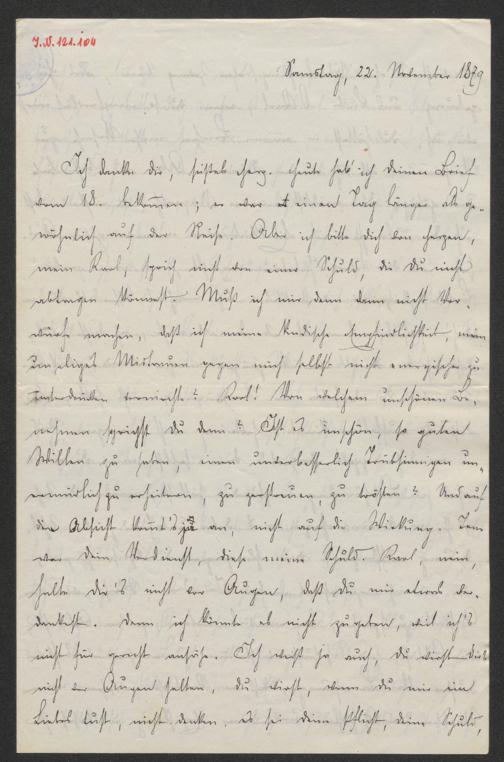 I.N. 121.104
Samstag, 22. November 1879
Ich danke Dir, süßes Herz. Heute hab' ich Deinen Brief
vom 18. bekommen; er war einen Tag länger als ge-
wöhnlich auf der Reise. Aber ich bitte Dich von Herzen,
mein Karl, sprich nicht von einer Schuld die Du nicht
abtragen könntest. Muß ich mir denn dann nicht Vor-
würfe machen, daß ich meine kindische Empfindlichkeit, mein
unseliges Mistrauen gegen mich selbst nicht energischer zu
unterdrücken vermochte? Karl! Von welchem unschönen Be-
nehmen sprichst Du denn? Ist es unschön, so guten
Willen zu haben, einen unverbesserlich Trübsinnigen un-
ermüdlich zu erheitern, zu zerstreuen, zu trösten? Und auf
die Absicht kommt's ja an, nicht auf die Wirkung. Jene
war Dein Verdienst, diese meine Schuld. Karl, nein,
halte Dir's nicht vor Augen, daß Du mir etwas ver-
dankest. Denn ich könnte es nicht zugeben, weil ich's
nicht für gerecht ansehe. Ich weiß ja auch, Du wirst Dir's
nicht vor Augen halten, Du wirst, wenn Du mir ein
Liebes tust, nicht denken, es sei Deine Pflicht, Deine Schuld,